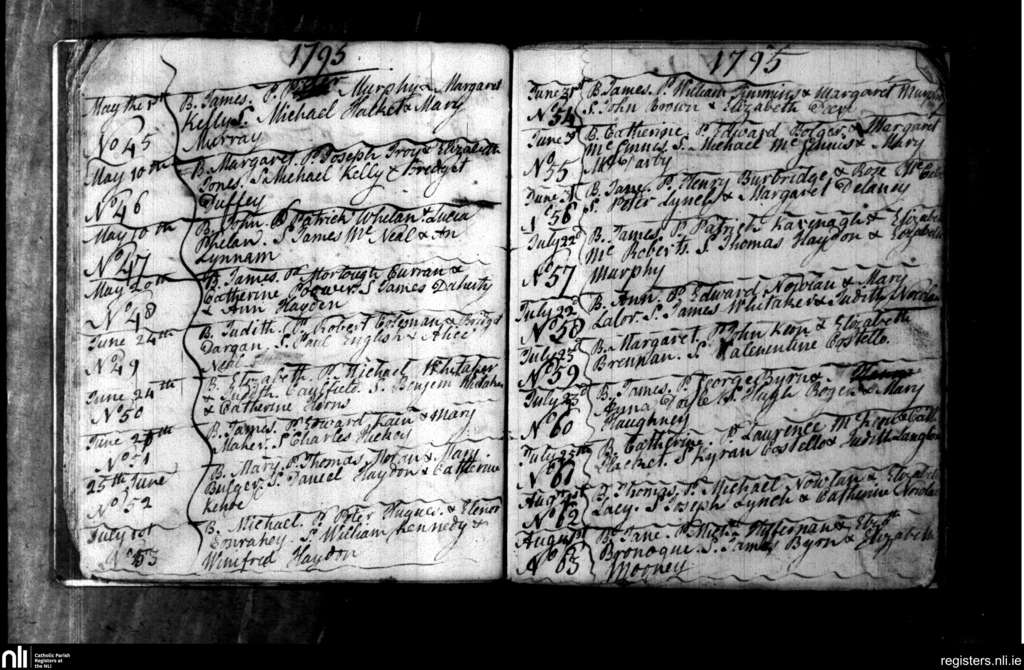 1795
May the 1st B. James. P. Peter Murphy & Margaret
Kelly S. Michael Halket & Mary
No 45 Murray
May 10th B. Margaret. P. Joseph Troy & Elizabeth
Jones. S. Michael Kelly & Bridget
No 46 Duffey
May 10th B. John P Patrick Whelan & Lucia
Phelan. S James Mc Neal & An
No 47 Lynnam
May 20th B. James. P. Mortough Curran &
Catherine Poower. S James Daherty
No 48 & Ann Hayden
June 24th B. Judith. P. Robert Coleman & Bridgt
Dargan. S. Paul English & Alice
No 49 Neale
June 24th B. Elizabeth. P. Michael Whitaker
& Judith Caulfield. S. Benjem
No 50 & Catherine Horns
June 28th B. James. P. Edward Kain & Mary
No 51 Maher. S Charles Hickey
25th June B. Mary. P. Thomas Horan & Mary
Bulger. S. Daniel Haydon & Catherine
No 52 Kehoe
July 1st B. Michael. P. Peter Hughes & Elenor
Conrahey. S. William Kennedy &
No 53 Winifred Haydon
1795
June B. James. P. William Timmins & Margaret Murphy
No 54 S. John Brown & Elizabeth
June B. Catherine. P. Edward Bolger & Margaret
Mc Ginnis. S. Michael Mc Ginnis & Mary
No 55 Mc Carty
June B. Jane. P. Henry Burbridge & Rose Mc
No 56 S. Peter Lynch & Margaret Delaney
July 22d B. James. P. Patrick Kavenagh & Elizabeth
Mc Roberts. S Thomas Haydon & Elizabeth
No 57 Murphy
July 22 B. Ann. P. Edward Nowlan & Mary
No 58 Lalor. S. James Whitaker & Judith Nowlan
July 25 B. Margaret. P. John Keon & Elizabeth
No 59 Brennan. S Valenentine Costello.
July 23d B. James. P. George Byrn &
Anna Doyle. S. Hugh Roger & Mary
No 60 Haughney
July 25th B. Catherine. P Laurence Mc &
No 61 Hacket. S Kyran Costello & Judith Langton
August B. Thomas. P. Michael Nowlan & Elizabeth
No 62 Lacy. S Joseph Lynch & Catherine Nowlan
August B. Jane. P. Michl Heffernan & Elizth
Bronoque S. James Byrn & Elizabeth
No 63 Mooney
nli Catholic Parish
Registers at
the NLI
registers.nli.ie